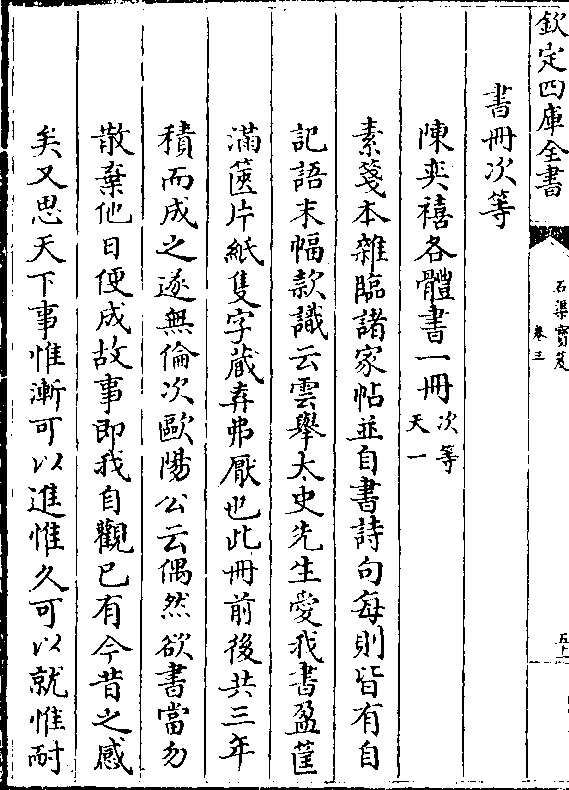 欽定四庫全書
石渠寶笈
卷三
書冊次等
陳奕禧各體書一冊次等天一
素箋本雜臨諸家帖並自書詩句每則皆有自
記語末幅款識云雲舉太史先生愛我書盈筐
滿篋片紙隻字蔵弆弗厭也此冊前後共三年
積而成之遂無倫次歐陽公云偶然欲書當勿
散棄他日便成故事即我自觀已有今昔之感
矣又思天下事惟漸可以進惟久可以就惟耐